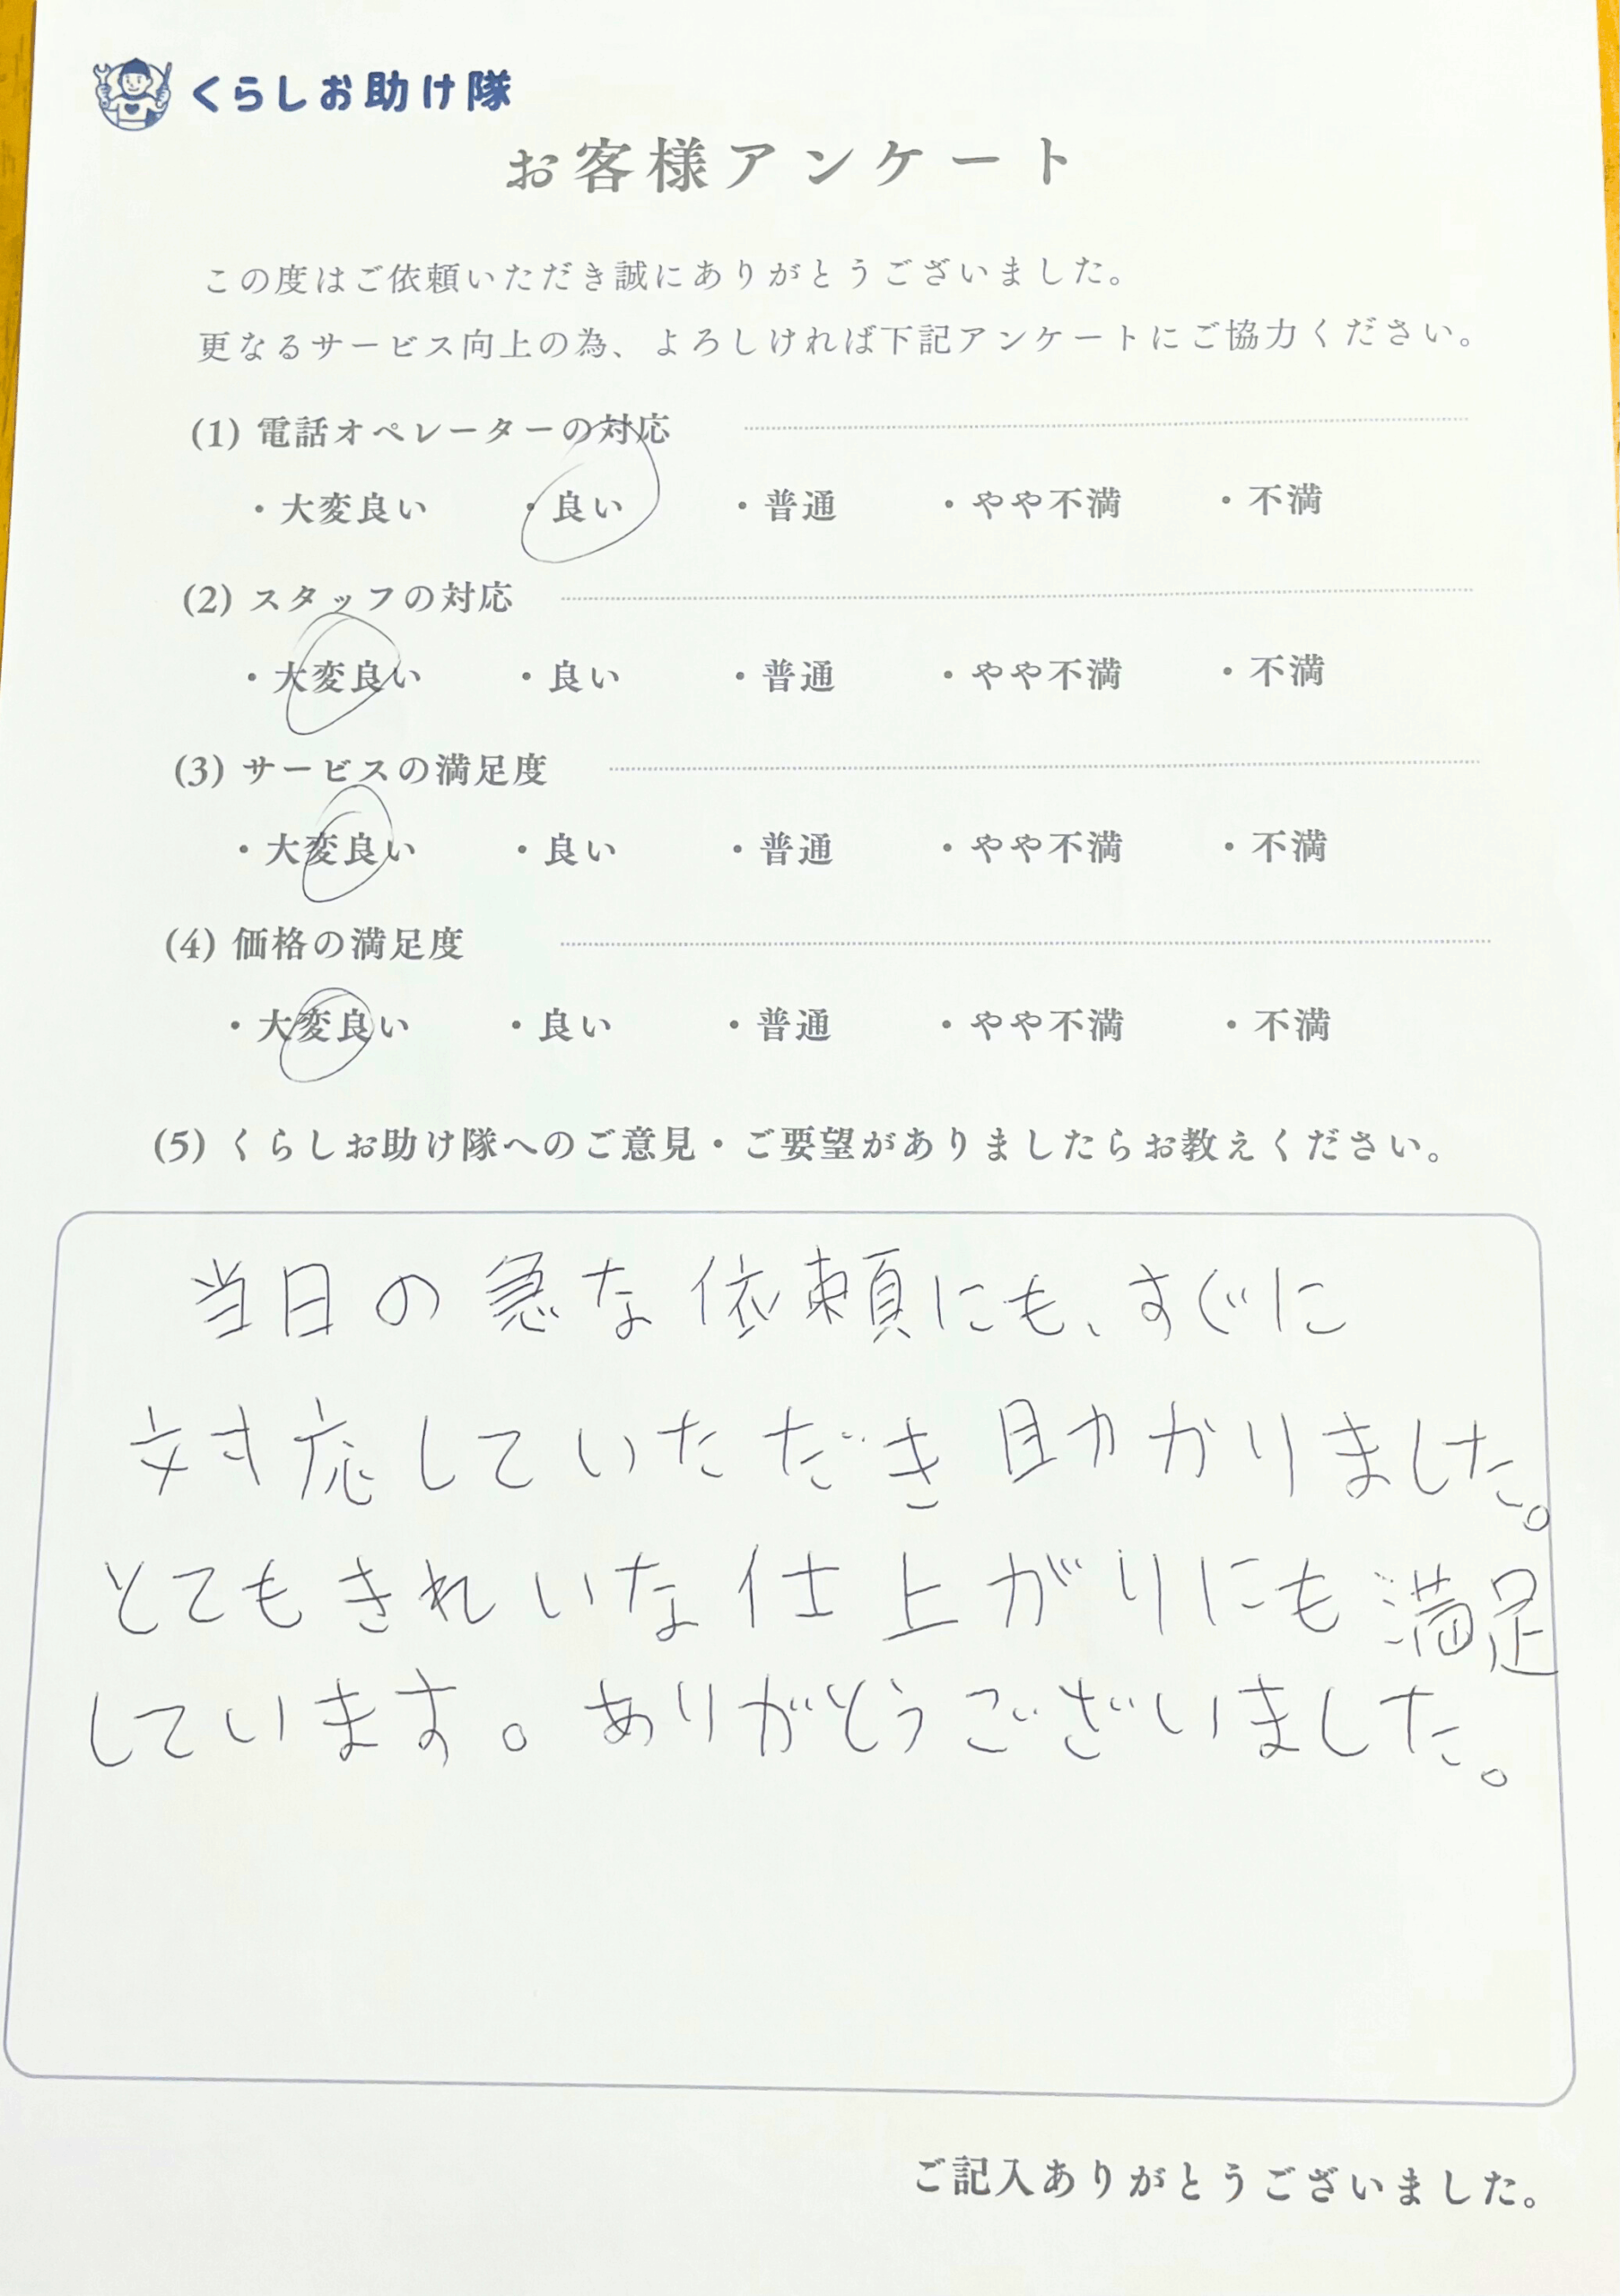 くらしお助け隊
お客様アンケート
この度はご依頼いただき誠にありがとうございました。
更なるサービス向上の為、よろしければ下記アンケートにご協力ください。
(1) 電話オペレーターの対応
・大変良い ・良い ・普通 ・やや不満 ・不満
(2) スタッフの対応
・大変良い ・良い ・普通 ・やや不満 ・不満
(3) サービスの満足度
・大変良い ・良い ・普通 ・やや不満 ・不満
(4) 価格の満足度
・大変良い ・良い ・普通 ・やや不満 ・不満
(5) くらしお助け隊へのご意見・ご要望がありましたらお教えください。
当日の急な依頼にも、すぐに
対応していただき助かりました。
とてもきれいな仕上がりにも満足
しています。ありがとうございました。
ご記入ありがとうございました。